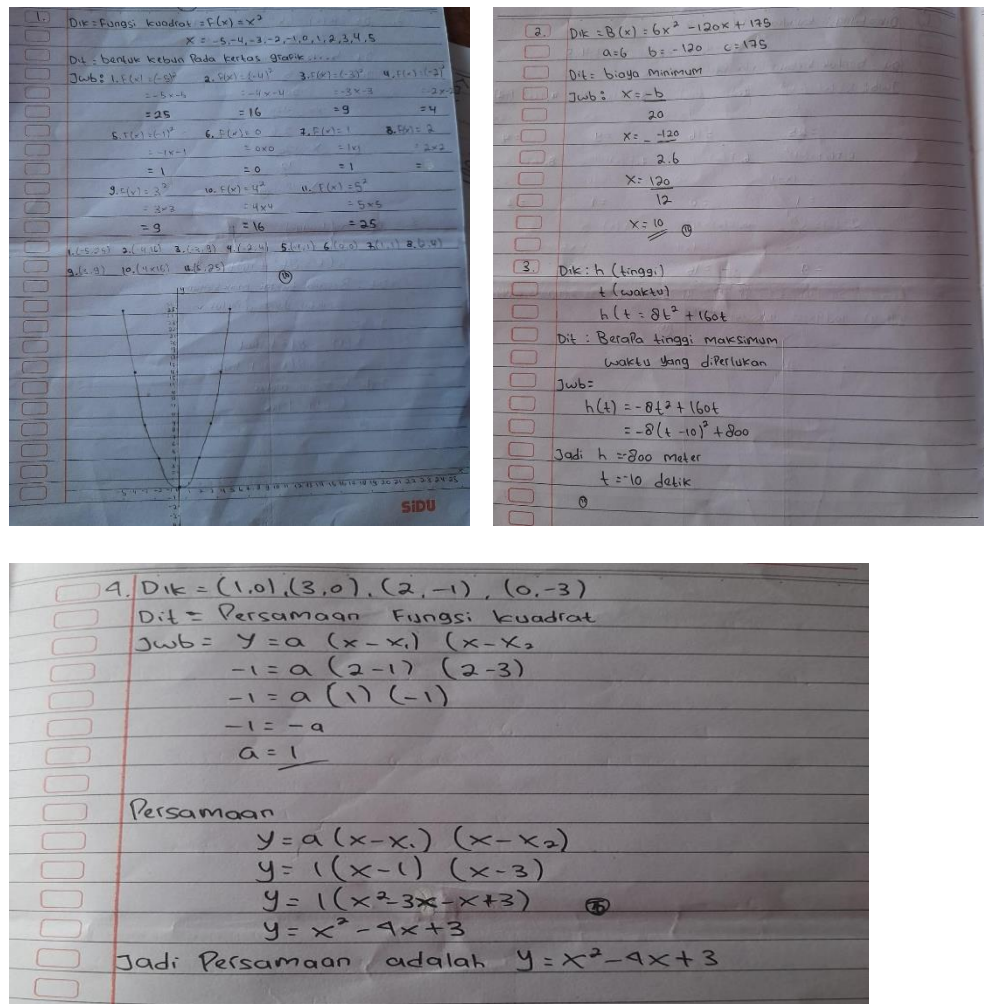 1. Dik = Fungsi kuadrat = F(x) = x²
x = -5,-4,-3,-2,-1,0,1,2,3,4,5
Dit = bentuk kebun Pada kertas grafik
Jwb: 1. F(x) = (-5)² 2. F(x) = (-4)² 3. F(x) = (-3)² 4. F(x) = (-2)²
= -5 x -5 = -4 x -4 = -3 x -3 = -2 x -2
= 25 = 16 = 9 = 4
5. F(x) = (-1)² 6. F(x) = 0 7. F(x) = 1 8. F(x) = 2
= -1 x -1 = 0x0 = 1x1 = 2x2
= 1 = 0 = 1 =
9. F(x) = 3² 10. F(x) = 4² 11. F(x) = 5²
= 3x3 = 4x4 = 5x5
= 9 = 16 = 25
5.(-1,1) 6.(0,0) 7.(1,1)
SiDU
2. Dik = B(x) = 6x² - 120x + 175
a=6 b=-120 c=175
Dit = biaya minimum
Jwb: x = -b
20
x = - -120
2.6
x = 120
12
x = 10
3. Dik : h (tinggi)
t (waktu)
h(t = 8t² + 160t
Dit : Berapa tinggi maksimum
waktu yang diperlukan
Jwb =
h(t) = -8t² + 160t
= -8(t -10)² + 800
Jadi h =-800 meter
t =-10 detik
4. Dik = (1,0),(3,0),(2,-1),(0,-3)
Dit = Persamaan Fungsi kuadrat
Jwb = y = a (x-x₁) (x-x₂
-1 = a (2-1) (2-3)
-1 = a (1) (-1)
-1 = -a
a = 1
Persamaan
y = a (x-x₁) (x-x₂)
y = 1(x-1) (x-3)
y = 1(x²-3x-x+3)
y = x² - 4x + 3
Jadi Persamaan adalah y = x² - 4x + 3